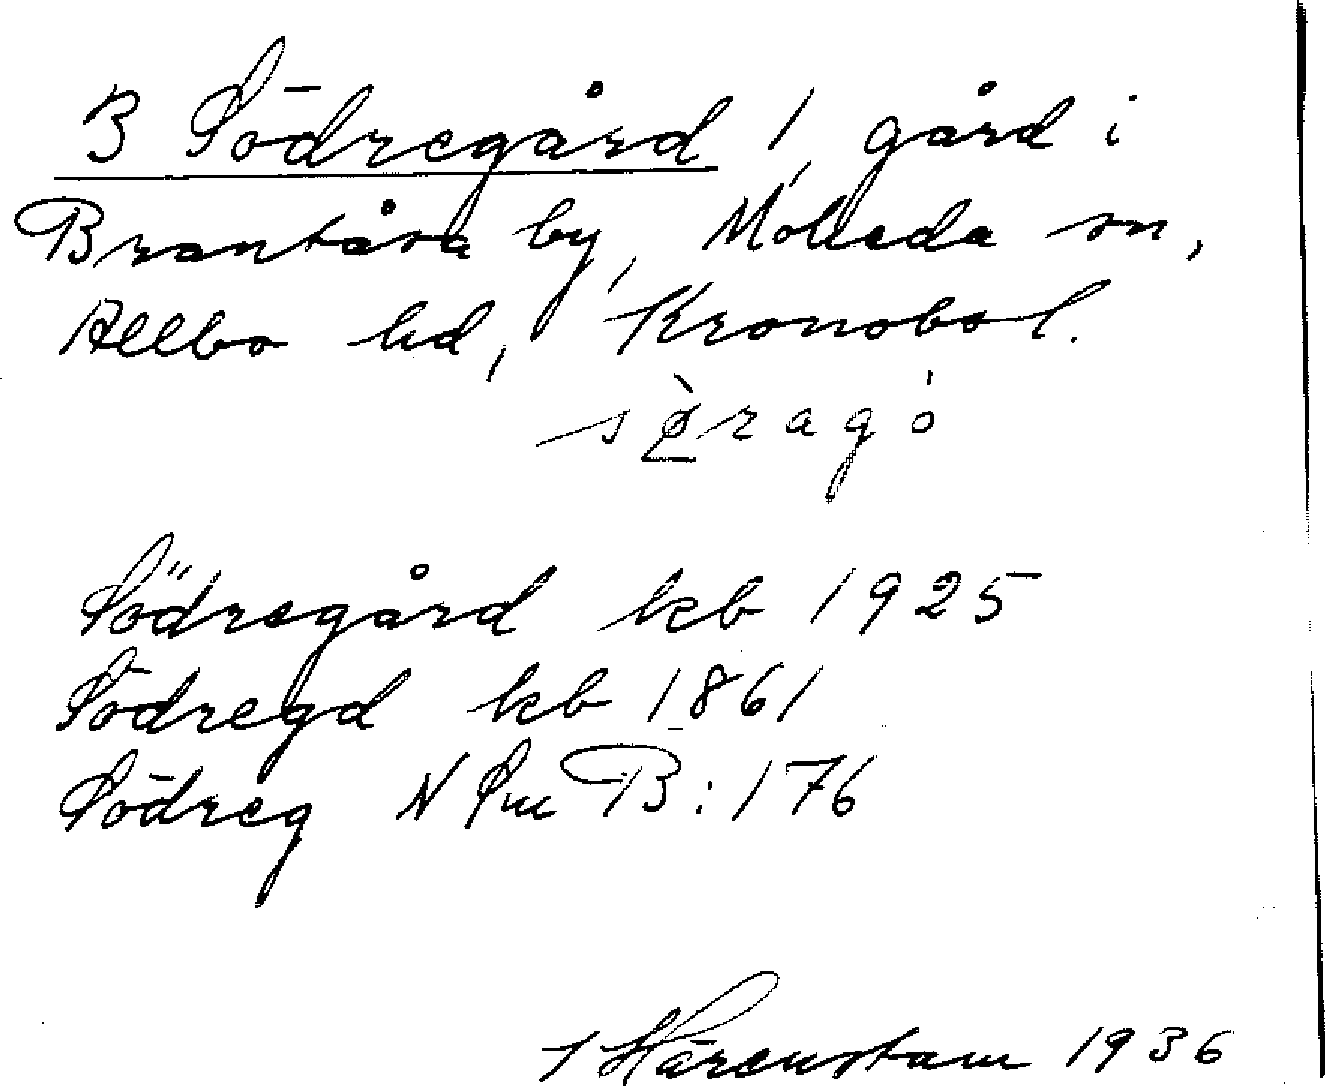 B Södregård, gård i
Brantåsa by, Moheda sn,
Allbo hd, Kronobol.
sø̀ragó
Södregård kb 1925
Södregd kb 1861
Södreg N Sm B:176
Härenstam 1936